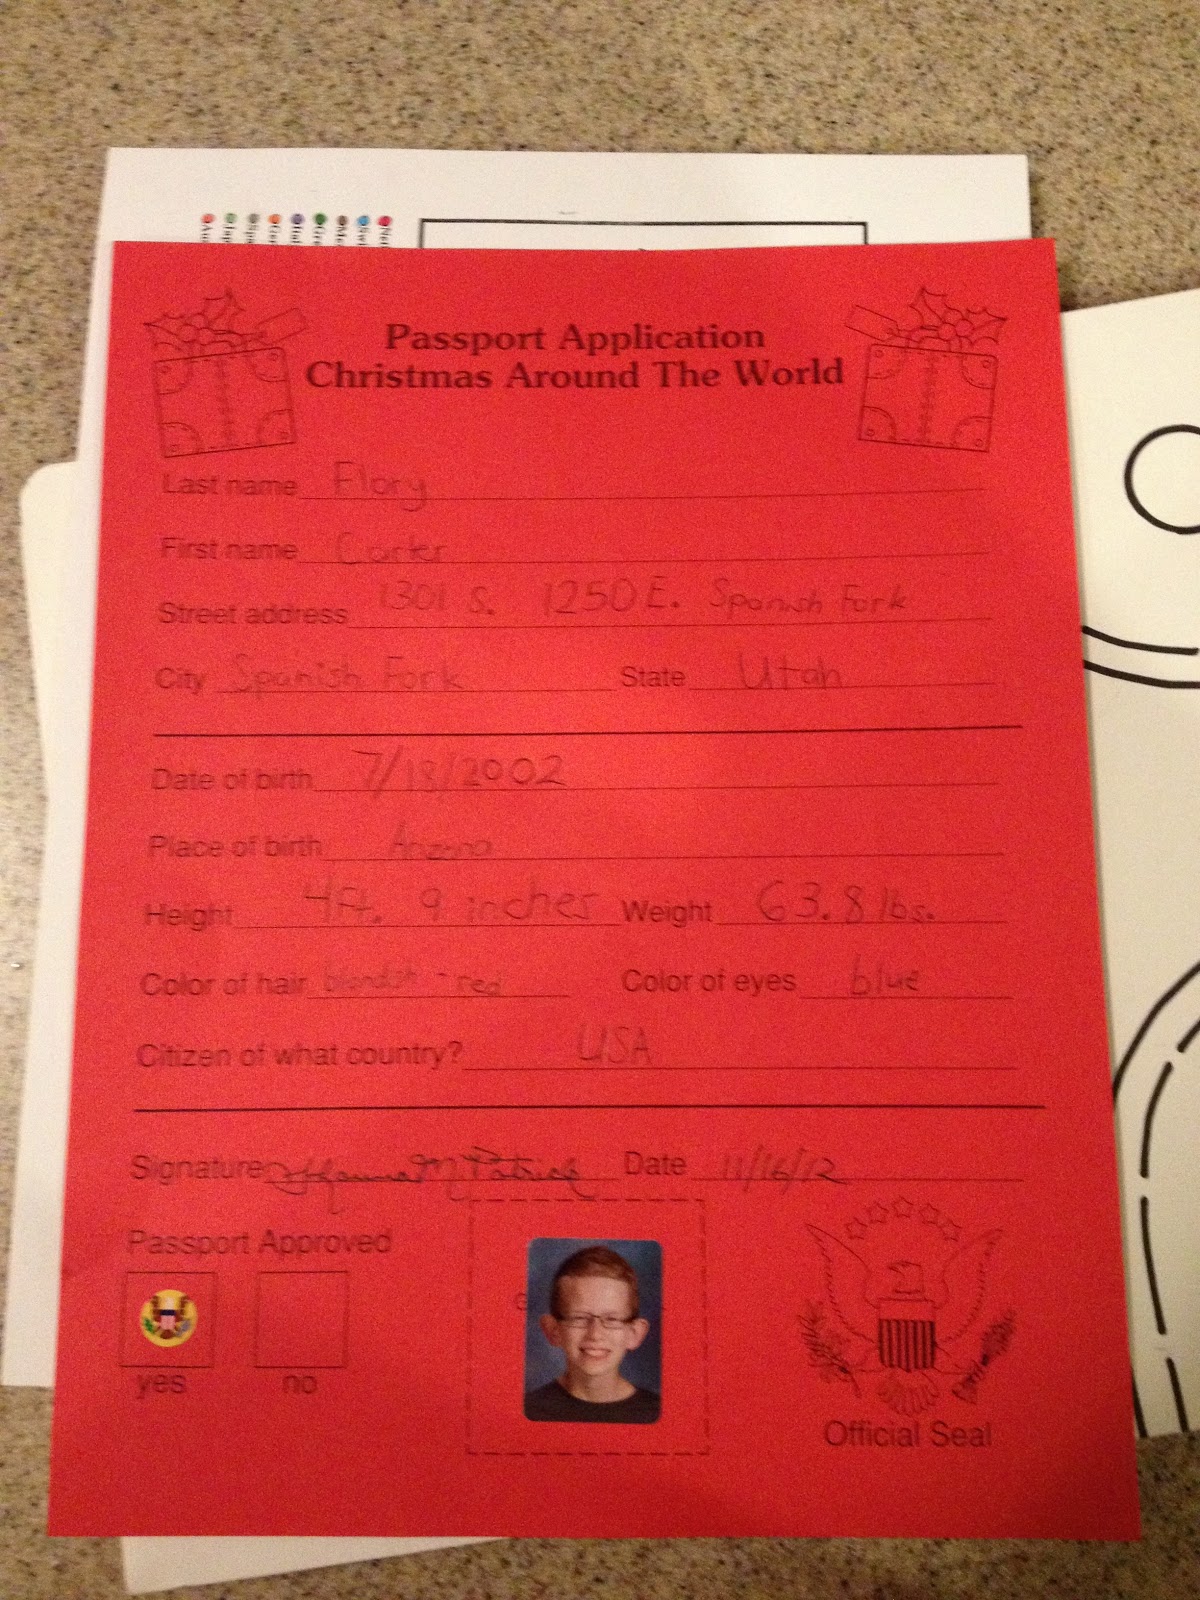 Passport Application
Christmas Around The World
Last name Flory
First name Carter
Street address 1301 S. 1250 E. Spanish Fork
City Spanish Fork State Utah
Date of birth 7/18/2002
Place of birth Arizona
Height 4ft. 9 inches Weight 63.8 lbs.
Color of hair blondish - red Color of eyes blue
Citizen of what country? USA
Signature M Patrick Date 11/16/12
Passport Approved
yes no
Official Seal